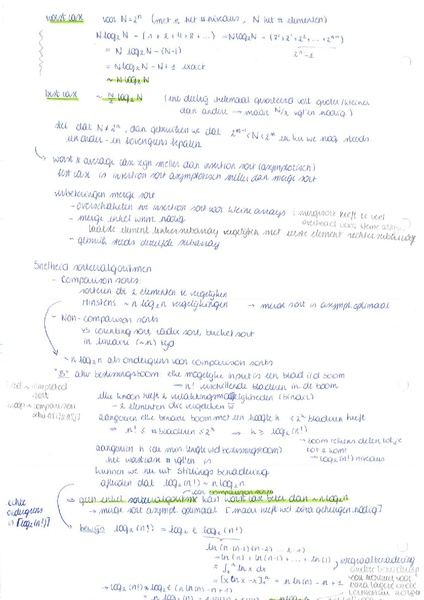 worst case voor N=2^n (met n het # niveaus, N het # elementen)
N log₂ N - (1 + 2 + 4 + 8 + ...) = N log₂ N - (2⁰ + 2¹ + 2² + ... + 2^(n-1))
2^n - 1
= N log₂ N - (N-1)
= N log₂ N - N + 1 exact
~ N log₂ N
best case ~ N/2 log₂ N (ene deelrij helemaal gesorteerd vóór groter/kleiner
dan andere → maar N/2 vgl'en nodig)
stel dat N ≠ 2^n, dan gebruiken we dat 2^(n-1) < N < 2^n en kun we nog steeds
onder- en bovengrens bepalen
→ worst & average case zijn sneller dan insertion sort (asymptotisch)
best case is insertion sort asymptotisch sneller dan merge sort
verbeteringen merge sort
- overschakelen op insertion sort voor kleine arrays : mergesort heeft te veel
overhead voor kleine
- merge enkel wnn. nodig
laatste element linkersubarray vergelijken met eerste element rechter subarray
- gebruik steeds dezelfde subarray
Snelheid sorteeralgoritmen
- Comparison sorts:
sorteren dr 2 elementen te vergelijken
Minstens ~ n log₂ n vergelijkingen → merge sort is asympt. optimaal
- Non-comparison sorts
vb counting sort, radix sort, bucket sort
in lineaire (~n) tijd
→ ~ n log₂ n als ondergrens voor comparison sorts
"B" adhv beslissingsboom elke mogelijke input is een blad i/d boom
→ n! verschillende bladeren in de boom
elke knoop heeft 2 vertakkingsmogelijkheden (binair)
- 2 elementen die vergeleken w
aangezien elke binaire boom met een hoogte h ≤ 2^h bladeren heeft
→ n! ≤ # bladeren ≤ 2^h → h ≥ log₂(n!)
aangezien h (de max lengte vd beslissingsboom)
het worst case # vgl'en is
→ log₂(n!) niveaus
kunnen we nu met Stirlings benadering
afleiden dat log₂(n!) ~ n log₂ n
→ geen enkel sorteeralgoritme kan worst case beter dan ~ n log₂ n
→ merge sort asympt. optimaal (maar heeft wel extra geheugen nodig)
echte ondergrens is ⌈log₂(n!)⌉
bewijs log₂(n!) = log₂ e · ln(n!)
ln(n·(n-1)(n-2)·...·2·1)
= ln(n) + ln(n-1) + ... + ln(1)
≈ ∫₁ⁿ ln x dx
= [x ln x - x]₁ⁿ = n ln(n) - n + 1
→ log₂(n!) ≈ log₂ e (n ln(n) - n + 1)